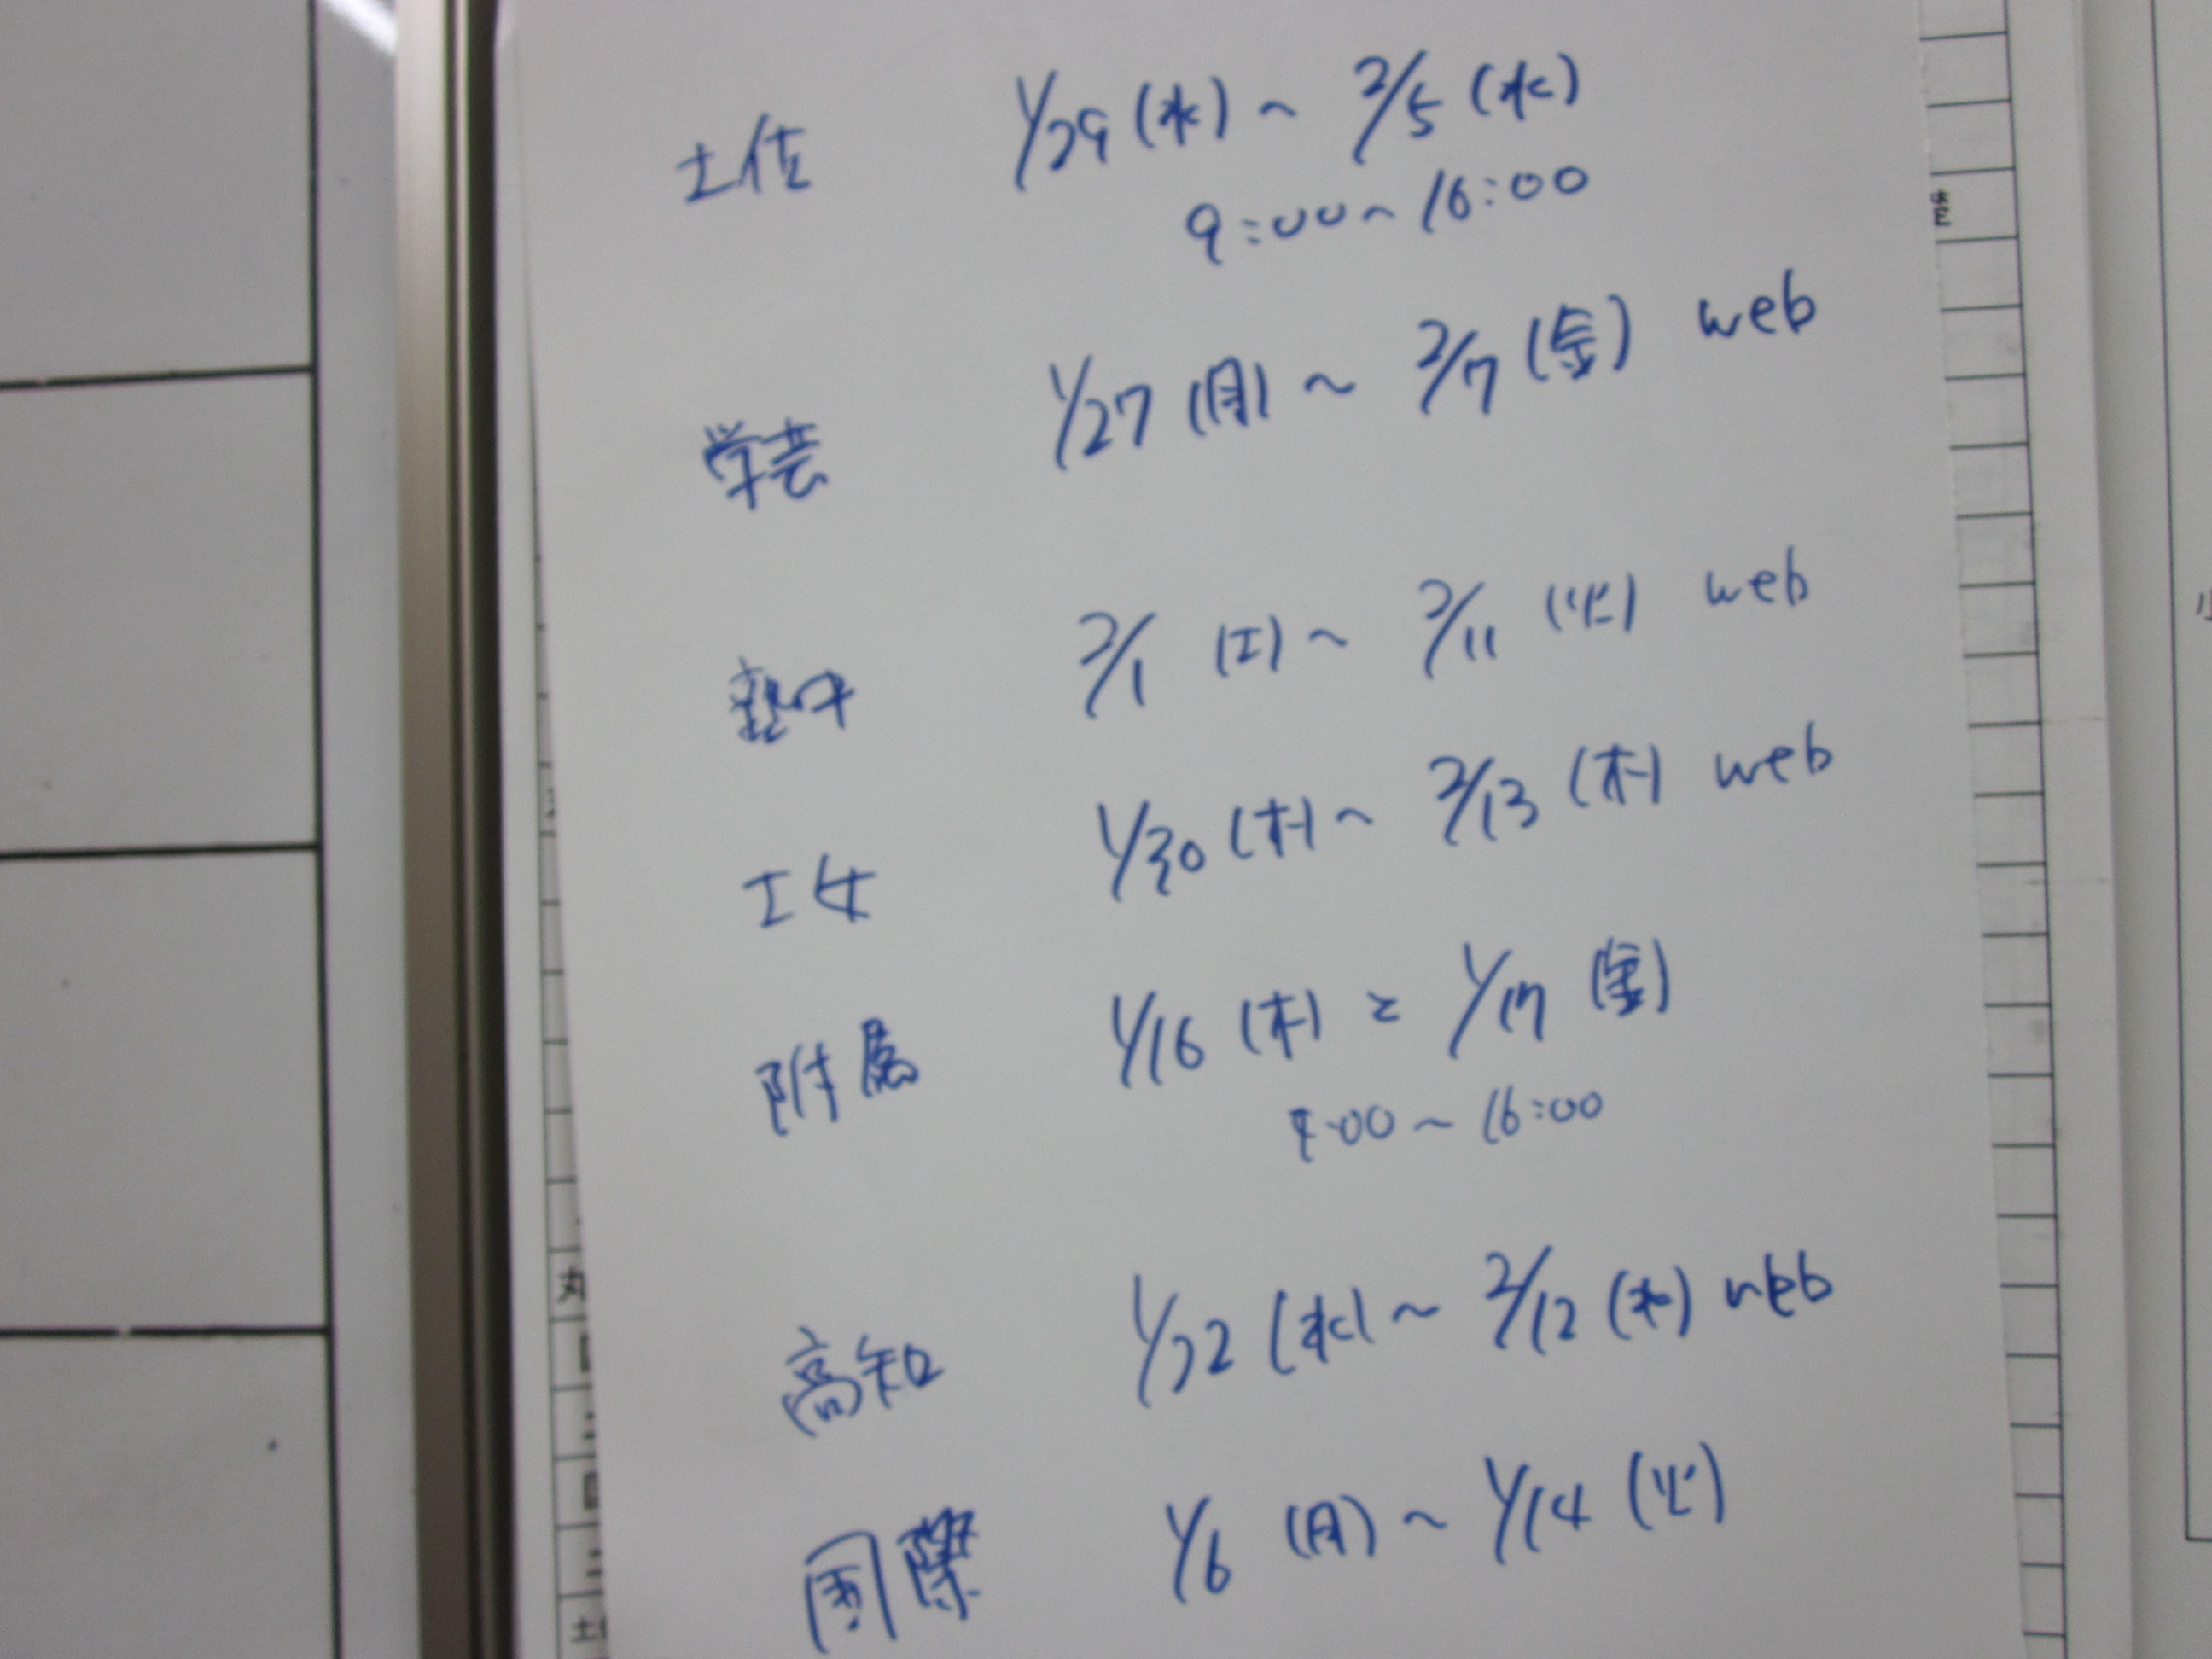 土佐 1/29(水)～2/5(水)
9:00～16:00
学芸 1/27(月)～2/7(金) web
塾中 2/1(土)～2/11(火) web
土女 1/30(木)～2/13(木) web
附属 1/16(木)と1/17(金)
9:00～16:00
高知 1/22(水)～2/12(水) web
国際 1/6(月)～1/14(火)